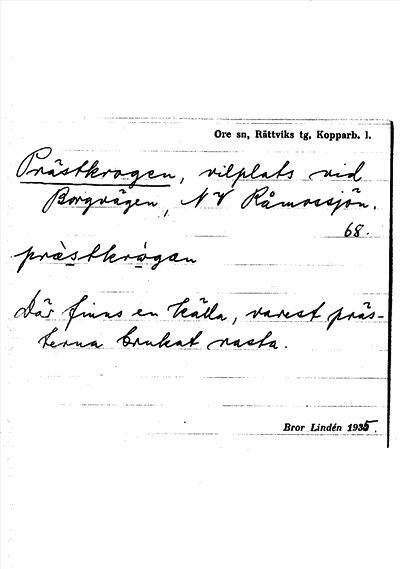 Ore sn, Rättviks tg, Kopparb. l.
Prästkrogen, vilplats vid
Borgvägen, NV Råmossjön.
68.
prä̀stkrògan
Där finns en källa, varest präs-
terna brukat rasta.
Bror Lindén 1935.